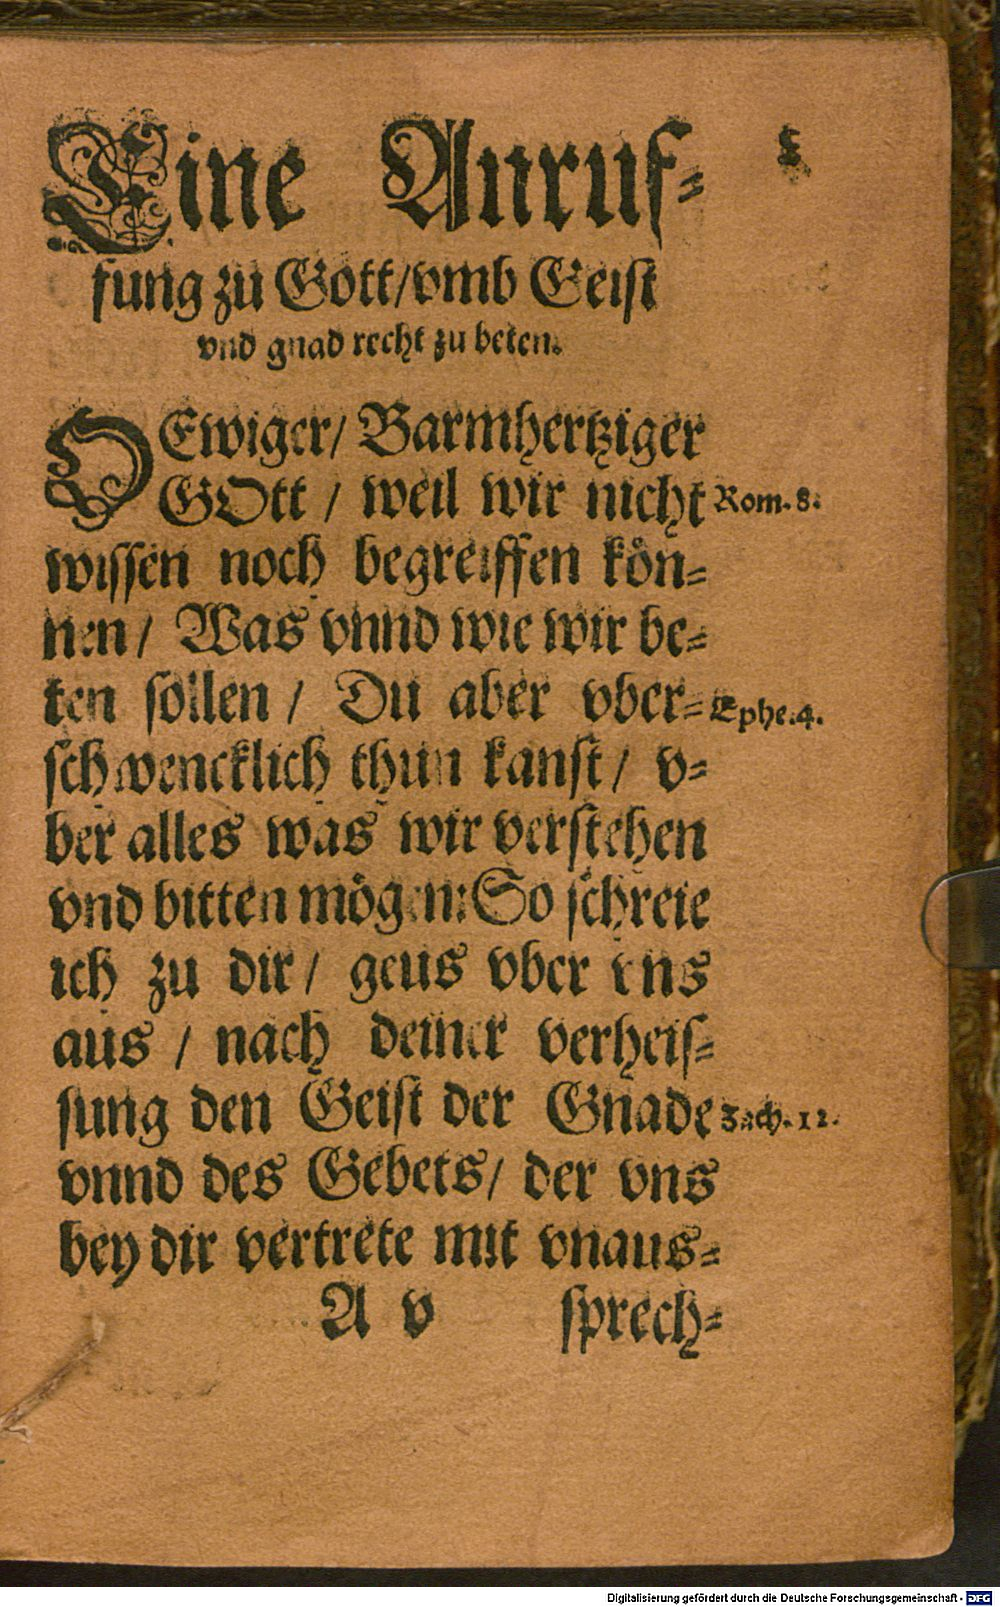 Eine Anruf-
fung zu Gott/vmb Geist
vnd gnad recht zu beten.
O Ewiger/ Barmhertziger
GOtt / weil wir nicht Rom. 8.
wissen noch begreiffen kön-
nen/ Was vnnd wie wir be-
ten sollen / Du aber vber- Ephe.4.
schwencklich thun kanst/ v-
ber alles was wir verstehen
vnd bitten mögen: So schreie
ich zu dir/ geus vber vns
aus / nach deiner verheis-
sung den Geist der Gnade Zach. 12.
vnnd des Gebets/ der vns
bey dir vertrete mit vnaus-
A v sprech-
Digitalisierung gefördert durch die Deutsche Forschungsgemeinschaft - DFG